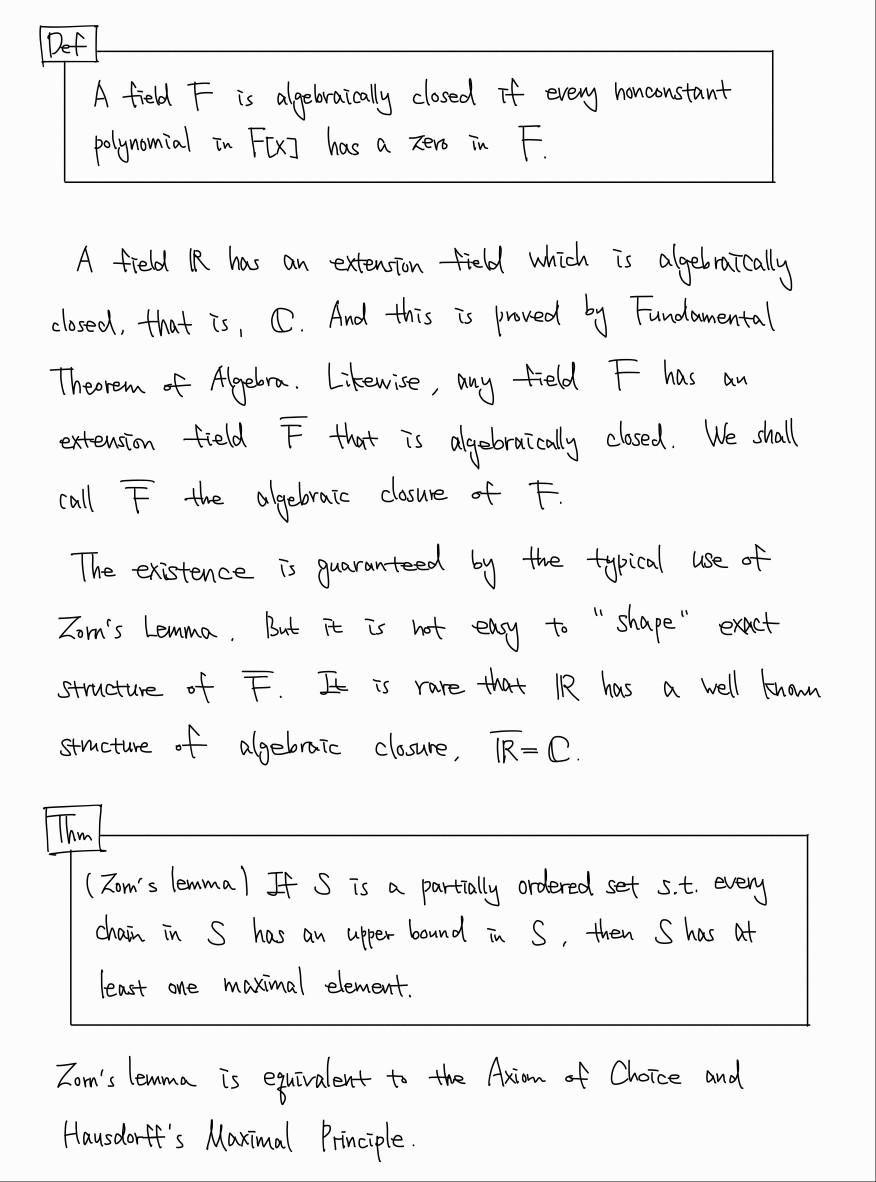 Def
A field F is algebraically closed if every nonconstant
polynomial in F[x] has a zero in F.
A field ℝ has an extension field which is algebraically
closed, that is, ℂ. And this is proved by Fundamental
Theorem of Algebra. Likewise, any field F has an
extension field F̅ that is algebraically closed. We shall
call F̅ the algebraic closure of F.
The existence is guaranteed by the typical use of
Zorn's Lemma. But it is not easy to "shape" exact
structure of F̅. It is rare that ℝ has a well known
structure of algebraic closure, ℝ̅ = ℂ.
Thm
(Zorn's lemma) If S is a partially ordered set s.t. every
chain in S has an upper bound in S, then S has at
least one maximal element.
Zorn's lemma is equivalent to the Axiom of Choice and
Hausdorff's Maximal Principle.